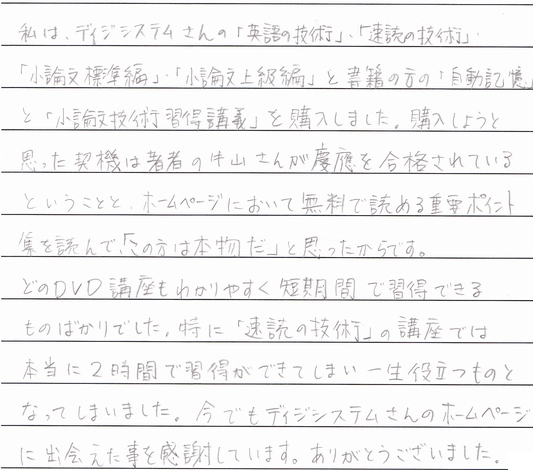 私は、ディジシステムさんの「英語の技術」、「速読の技術」・
「小論文標準編」・「小論文上級編」と書籍の方の「自動記憶」
と「小論文技術習得講義」を購入しました。購入しようと
思った契機は著者の牛山さんが慶應を合格されている
ということと、ホームページにおいて無料で読める重要ポイント
集を読んで、「この方は本物だ」と思ったからです。
どのDVD講座もわかりやすく短期間で習得できる
ものばかりでした。特に「速読の技術」の講座では
本当に2時間で習得ができてしまい一生役立つものと
なってしまいました。今でもディジシステムさんのホームページ
に出会えた事を感謝しています。ありがとうございました。